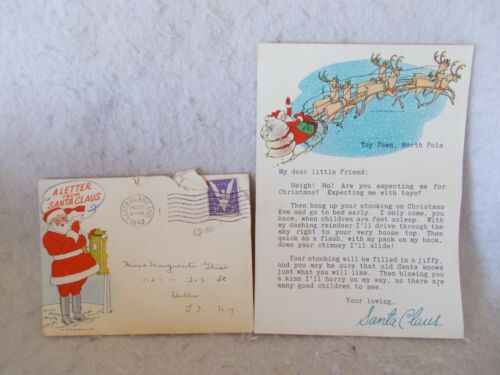 A LETTER
FROM
SANTA CLAUS
SANTA CLAUS, IND.
1943
Miss Marguerite
112-11 203 St
Hollis
L.I. N.Y.
Toy Town, North Pole.
My dear little Friend:
Heigh! Ho! Are you expecting me for
Christmas? Expecting me with toys?
Then hang up your stocking on Christmas
Eve and go to bed early. I only come, you
know, when children are fast asleep. With
my dashing reindeer I'll drive through the
sky right to your very house top. Then
quick as a flash, with my pack on my back,
down your chimney I'll slide!
Your stocking will be filled in a jiffy,
and you may be sure that old Santa knows
just what you will like. Then blowing you
a kiss I'll hurry on my way, as there are
many good children to see.
Your loving,
Santa Claus